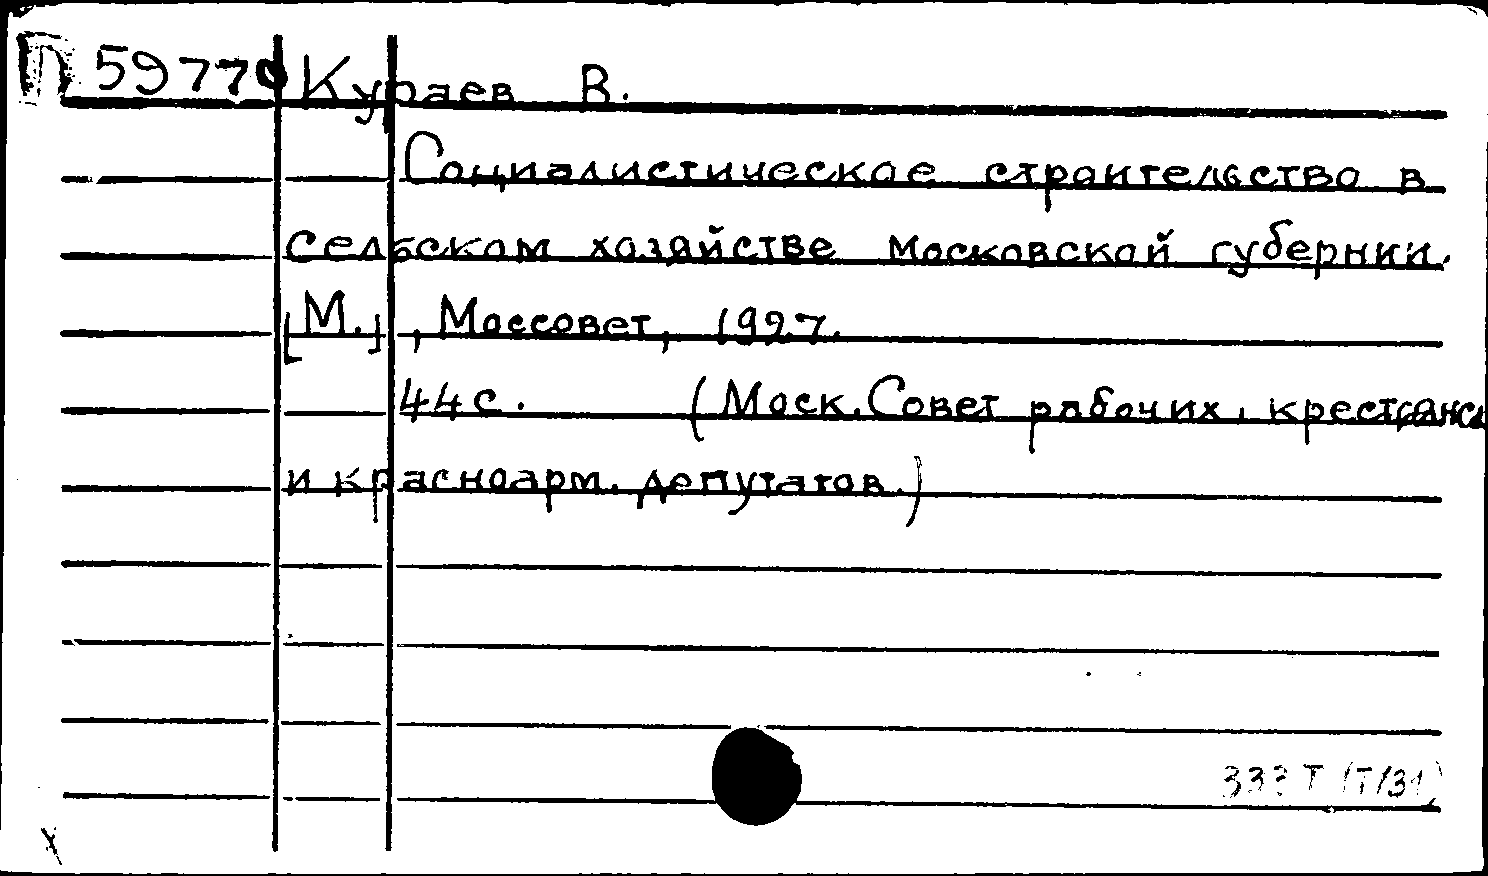 П 59770 Кураев В.
Социалистическое строительство в
сельском хозяйстве Московской губернии.
[М.], Моссовет, 1927.
44 с. (Моск. Совет рабочих, крестьянск
и красноарм. депутатов.)
333 Т (Т/31)